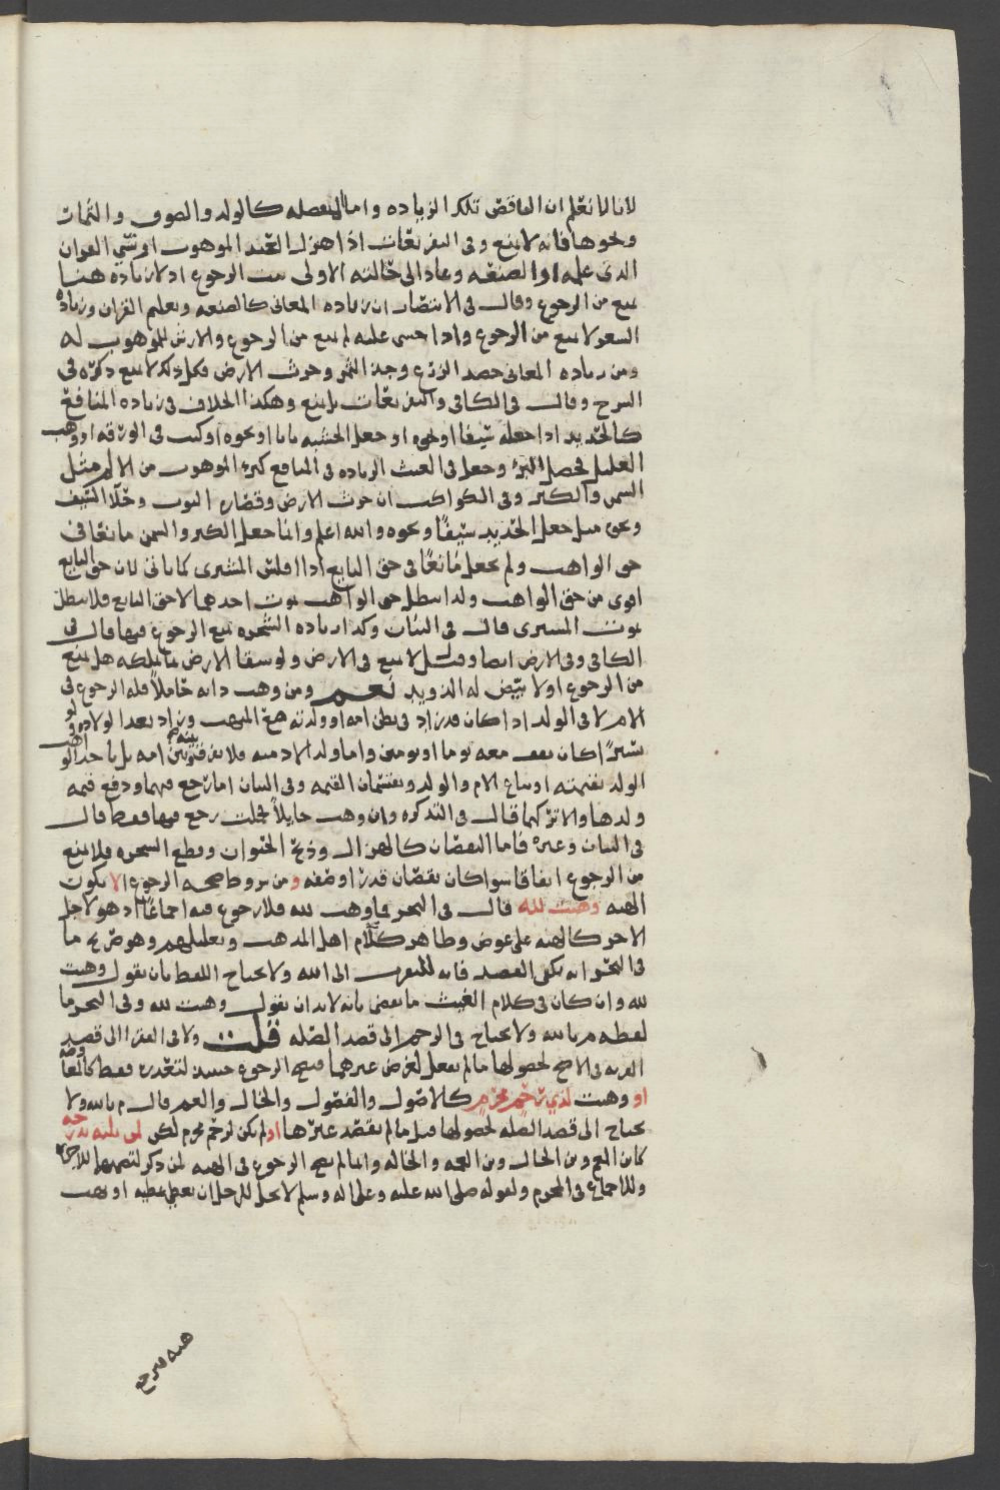 لانا لا نعلم ان الناقض تلك الزياده واما المنفصله كالولد والصوف والثمرات
ونحوها فانه لا يمنع وفي التفريعات اذا هزل العبد الموهوب او نسي القران
الذي علمه او الصنعه وعاد الى حالته الاولى ثبت الرجوع اذ لا زياده هنا
تمنع من الرجوع وقال في الانتصار ان زياده المعاني كالصنعه وتعليم القران وزياده
السعر لا تمنع من الرجوع واذا جنى عليه لم يمنع من الرجوع والارش للموهوب له
ومن زياده المعاني حصد الزرع وجذ الثمر وحرث الارض فكل ذلك لا يمنع ذكره في
الشرح وقال في الكافي والتفريعات بل يمنع وهكذا الخلاف في زياده المنافع
كالحديد اذا جعله سيفا او نحوه او جعل الخشبه بابا او نحوه او كتب في الورقه او وهب
العليل فحصل البرء وجعل في الغيث الزياده في المنافع كبرء الموهوب من الالم مثل
السمن والكبر وفي الكواكب ان حرث الارض وقصاره الثوب وجلا السيف
ونحوه مثل جعل الحديد سيفا ونحوه والله اعلم وانما جعل الكبر والسمن مانعا في
حق الواهب ولم يجعل مانعا في حق البايع اذا افلس المشتري كما ياتي لان حق البايع
اقوى من حق الواهب ولذا يبطل حق الواهب بموت احدهما لا حق البايع فلا يبطل
بموت المشتري قال في البيان وكذا زياده الشجره تمنع الرجوع فيها قال في
الكافي وفي الارض ايضا وقيل لا يمنع في الارض ولو سقا الارض بما يملكه هل يمنع
من الرجوع اولا بيض له الذويد نعم ومن وهب دابه حاملا فله الرجوع في
الام لا في الولد اذا كان قد زاد في بطن امه او ولدته مع المتهب وزاد بعد الولاده ولو
يسيرا كان يقف معه يوما او يومين واما ولد الادميه فلا يفرق بينه وبين امه بل ياخذ الواهب
الولد بقيمته او يباع الام والولد ويقتسمان القيمه وفي البيان اما رجع فيهما ودفع قيمه
ولدها والا تركهما قال في التذكره وان وهب حايلا فحملت رجع فيها فقط قال
في البيان وغيره فاما النقصان كالهزال وذبح الحيوان وقطع الشجره فلا يمنع
من الرجوع اتفاقا سوا كان نقصان قدر او صفه ومن شروط صحه الرجوع الا يكون
الهبه وهبت لله قال في البحر فما وهب لله فلا رجوع فيه اجماعا اذ هو لاجل
الاجر كالهبه على عوض وظاهر كلام اهل المذهب وتعليلهم وهو صريح ما
في البحر انه يكفي القصد فانه للتقرب الى الله ولا يحتاج اللفظ بان يقول وهبت
لله وان كان في كلام الغيث ما يقضي بانه لا بد ان يقول وهبت لله وفي البحر ما
لفظه م بالله ولا يحتاج في الرحم الى قصد الصله قلت ولا في الفقرا الى قصد
القربه في الاصح لحصولها ما لم يفعل لغرض غيرهما فيصح الرجوع حينئذ لتعذره فقط كالمعاوضه
او وهبت لذي رحم محرم كالاصول والفصول والخال والعم قال م بالله ولا
يحتاج الى قصد الصله لحصولها قبل ما لم يقصد غيرها او لم يكن لرحم محرم لكن لمن يليه بدرجه
كابن العم وبن الخال وبن العمه والخاله وانما لم يصح الرجوع في الهبه لمن ذكر لتضمنها للاجر
وللاجماع في المحرم ولقوله صلى الله عليه وعلى اله وسلم لا يحل للرجل ان يعطي عطيه او يهب
هبه فيرجع